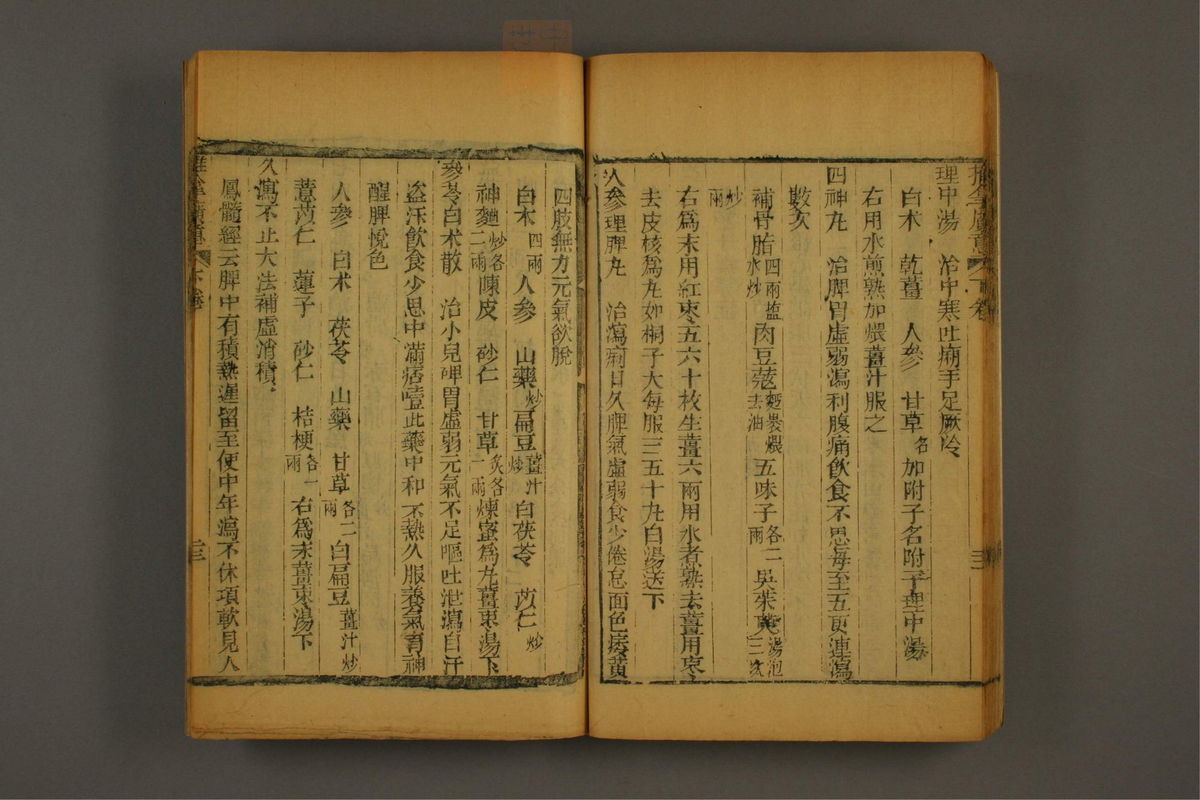 理中湯　治中寒吐痢手足厥冷
白术　乾薑　人參　甘草各　加附子名附子理中湯
右用水煎熟加煨薑汁服之
四神丸　治脾胃虛弱瀉利腹痛飲食不思每至五更連瀉
數次
補骨脂四兩盐水炒　肉豆蔻麵裹煨去油　五味子各二兩　吳茱萸湯泡三次
炒兩
右為末用紅棗五六十枚生薑六兩用水煮熟去薑用棗
去皮核為丸如桐子大每服三五十丸白湯送下
人參理脾丸　治瀉痢日久脾氣虛弱食少倦怠面色痿黃
四肢無力元氣欲脫
白术四兩　人參　山藥炒　扁豆薑汁炒　白茯苓　苡仁炒
神麯炒各二兩　陳皮　砂仁　甘草炙各一兩　煉蜜為丸薑棗湯下
參苓白术散　治小兒脾胃虛弱元氣不足嘔吐泄瀉自汗
盜汗飲食少思中滿痞噎此藥中和不熱久服養氣育神
醒脾悅色
人參　白术　茯苓　山藥　甘草各二兩　白扁豆薑汁炒
薏苡仁　蓮子　砂仁　桔梗各一兩　右為末薑棗湯下
久瀉不止大法補虛消積
鳳髓經云脾中有積熱遲留至使中年瀉不休項軟見人
下卷